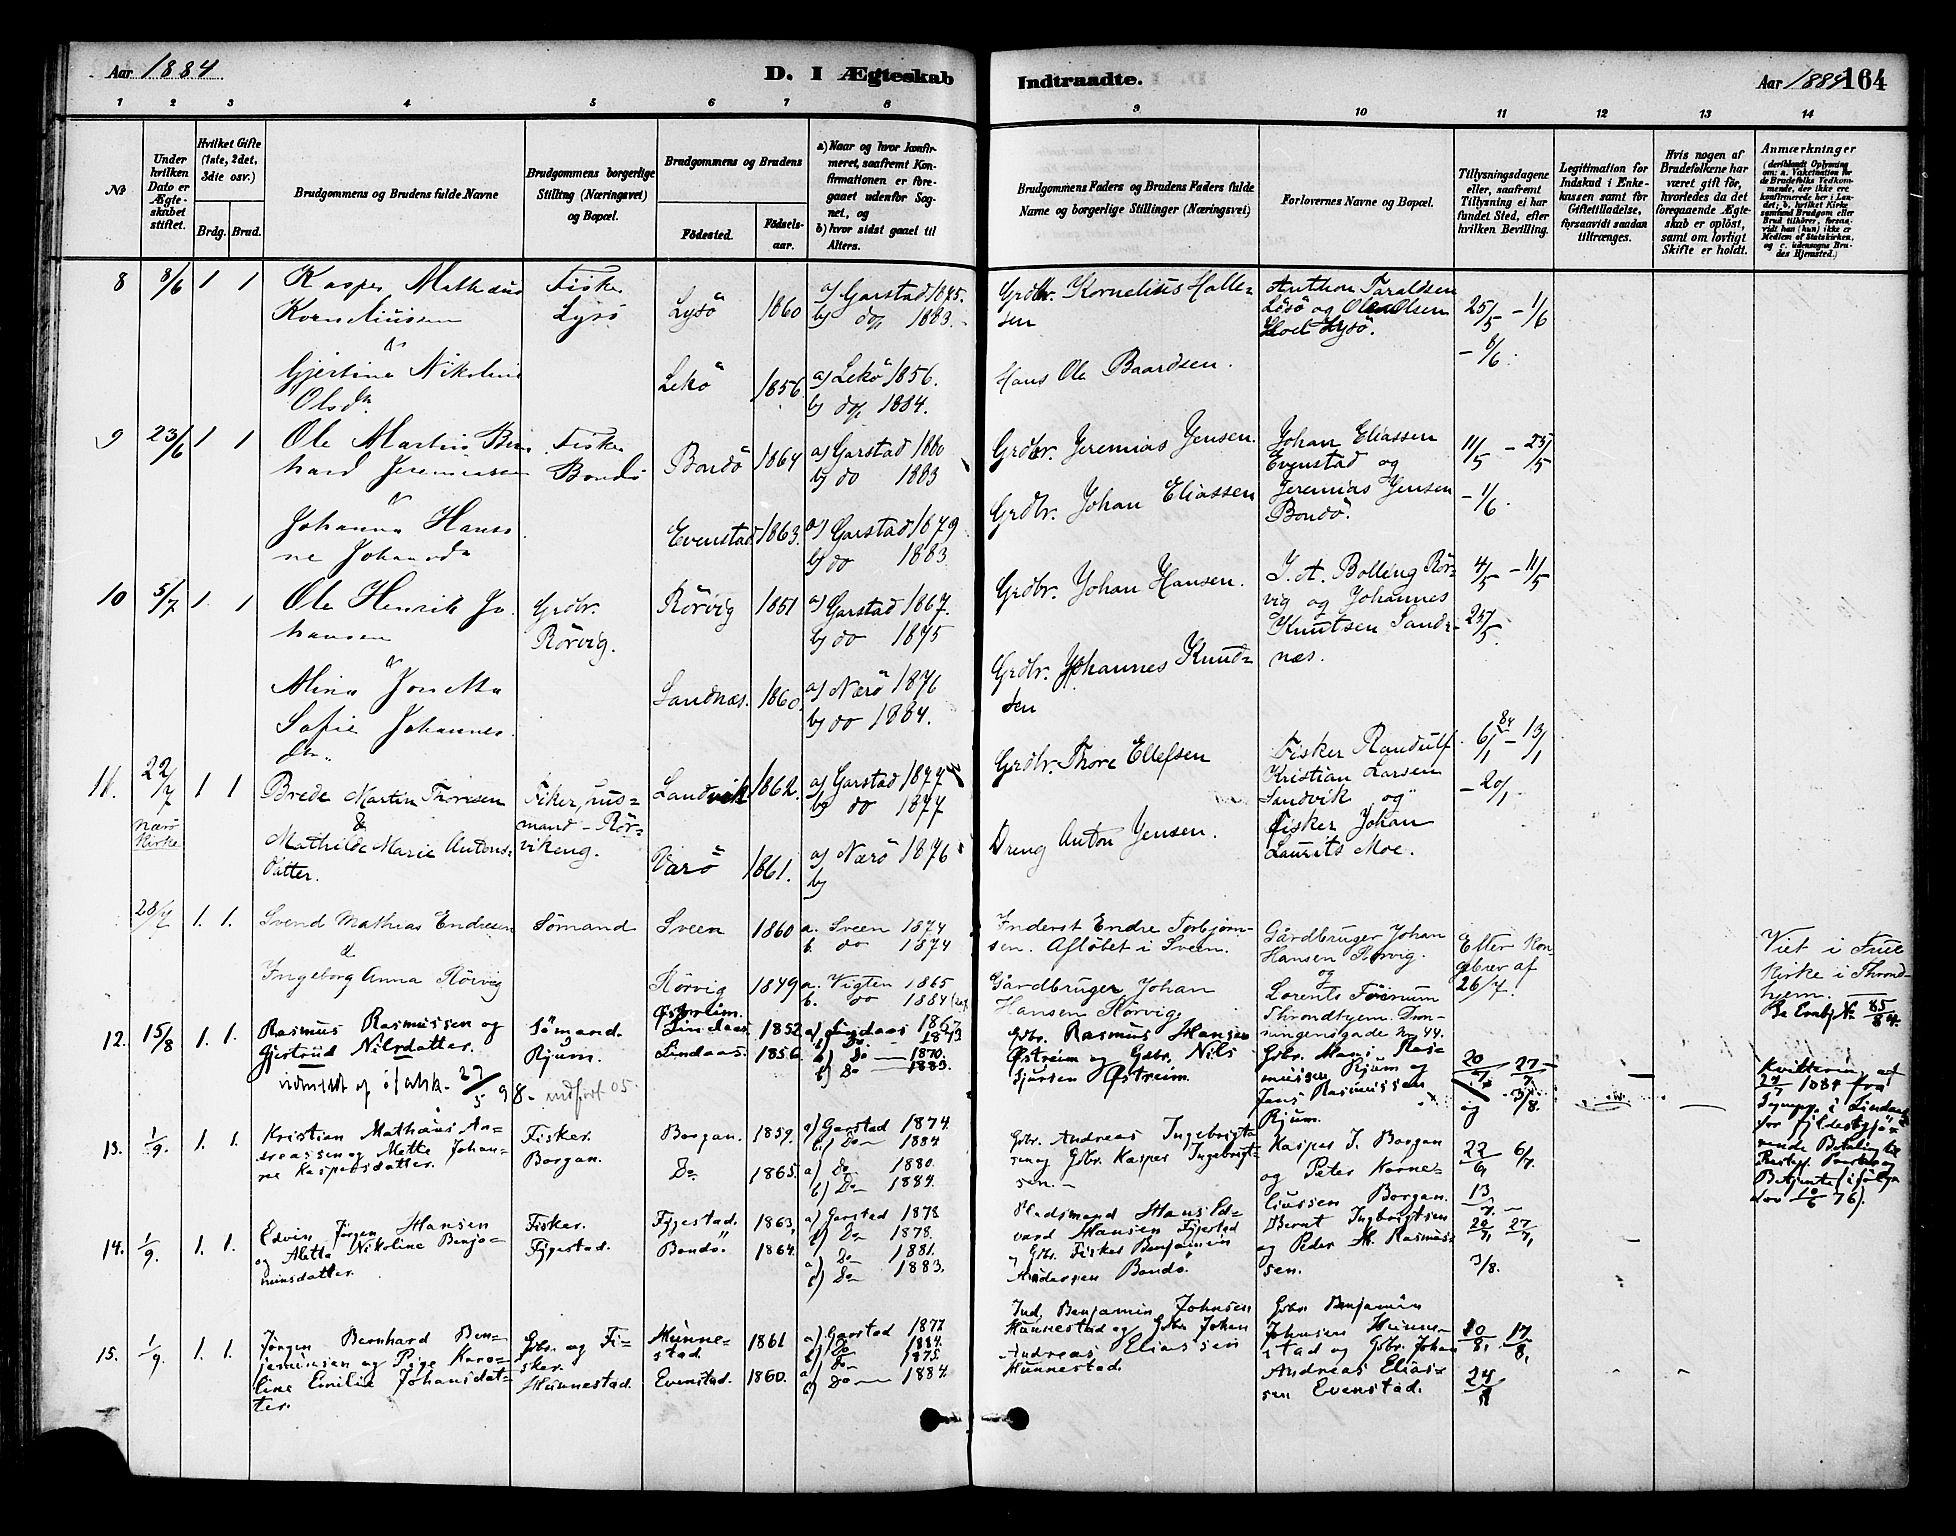 Aar 1884
D. I Ægteskab
Indtraadte.
Aar 1884
164
1 2 3 4 5 6 7 8 9 10 11 12 13 14
No
Under hvilken Dato er Ægteskabet stiftet.
Hvilket Gifte (1ste, 2det, 3die osv.)
Brdg. Brud.
Brudgommens og Brudens fulde Navne
Brudgommens borgerlige Stilling (Næringsvei) og Bopæl.
Brudgommens og Brudens
Födested.
Födselsaar.
a) Naar og hvor konfirmeret, saafremt Konfirmationen er foregaaet udenfor Sognet, og
b) hvor sidst gaaet til Alters.
Brudgommens Faders og Brudens Faders fulde Navne og borgerlige Stillinger (Næringsvei)
Forlovernes Navne og Bopæl.
Tillysningsdagene eller, saafremt Tillysning ei har fundet Sted, efter hvilken Bevilling.
Legitimation for Indskud i Enkekassen samt for Giftetilladelse, forsaavidt saadan tiltrænges.
Hvis nogen af Brudefolkene har været gift för, hvorledes da det foregaaende Ægteskab er oplöst, samt om lovligt Skifte er holdt.
Anmærkninger
8 8/6 1 1
Kasper Mathæus
Korneliussen
&
Gjertine Nikoline
Olsdtr
Fisker
Lysö
Lysö 1860
a) Garstad 1875.
b) do 1883.
Lekö 1856
a) Lekö 1856.
b) do 1884.
Grdbr. Kornelius Hallesen
Hans Ole Baardsen.
Anthon Taraldsen
Lysö og Ole Olsen
Hoel Lysö.
25/5 - 1/6
- 8/6.
9 23/6 1 1
Ole Martin Bernhard Jeremiassen
&
Johanna Hansine Johansdr
Fisker
Bondö
Bondö 1864
a) Garstad 1880
b) do 1883
Evenstad 1863.
a) Garstad 1879
b) do 1883.
Grdbr. Jeremias Jensen.
Grdbr. Johan Eliassen
Johan Eliassen
Evenstad og
Jeremias Jensen
Bondö.
11/5 - 25/5
- 1/6.
10 5/7 1. 1
Ole Henrik Johansen
&
Alina Jonetta
Sofie Johannesdtr.
Grdbr.
Rörvig.
Rörvig 1851
a) Garstad 1867.
b) do 1875
Sandnæs. 1860.
a) Nærö 1876
b) do 1884.
Grdbr. Johan Hansen.
Grdbr. Johannes Knudsen
J. A. Bolling Rörvig og Johannes
Knutsen Sandnæs.
4/5 - 11/5
25/5.
11. 22/7 1 1
Nærö
Kirke
Brede Martin Thoresen
&
Mathilde Marie Antonsdatter.
Fisker, husmand - Rörvikeng.
Sandvik 1862.
a) Garstad 1877
b) do 1877
Varö 1861.
a) Nærö 1876
b)
Grdbr. Thore Ellefsen
Dreng Anton Jensen.
Fisker Randulf
Kristian Larsen
Sandvik og
Fisker Johan
Laurits Moe.
84
6/1 - 13/1
- 20/1
28/7 1. 1.
Svend Mathias Endresen
&
Ingeborg Anna Rörvig
Sömand
Sveen 1860
a. Sveen 1874
b. do 1874
Rörvig 1849
a. Vigten 1865
b. do 1884
Inderst Endre Torbjørnsen. Aflötet i Sveen.
Gårdbruger Johan
Hansen Rörvig
Gårdbruger Johan
Hansen Rörvig.
og
Lorents
Throndhjem. Dronningensgade No 44.
Efter Kongebrev af
26/7.
Viet i Frue
Kirke i Throndhjem.
12. 15/8 1. 1.
Rasmus Rasmussen og
Gjertrud Nilsdatter.
Sömand.
Rjum.
Østreim.
Lindaas 1852
Lindaas. 1856.
a) Lindaas 1867
b) Do 1873
a) Do 1870.
b) Do 1883.
Gbr. Rasmus Hansen
Østreim og Gbr. Nils
Sjursen Østreim.
Gbr. Hans Rasmussen Rjum og
Jens Rasmussen
Rjum.
20/7 27/7
og 3/8.
Kvittering af
27/7 1884 fra
13. 1/9. 1. 1.
Kristian Mathæus Andreassen og Mette Johanne Kaspersdatter.
Fisker.
Borgan.
Borgan. 1859.
Do 1865.
a) Garstad 1874.
b) Do 1884
a) Do 1880.
b) Do 1884.
Gbr. Andreas Ingebrigtsen og Gbr. Kasper Ingebrigtsen.
Kasper J. Borgan
og Peter Korneliussen Borgan.
22/6 6/7.
13/7
14. 1/9. 1. 1.
Edvin Jørgen Hansen
og Aletta Nikoline Benjaminsdatter.
Fisker.
Fjgestad.
Fjgestad. 1863.
Bondö. 1864.
a) Garstad 1878
b) Do 1878.
a) Do 1881.
b) Do 1883.
Pladsmand Hans Edvard Hansen Fjgestad
og Gbr. Fisker Benjamin
Andersen Bondö.
Bernt Ingbrigtsen
og Peder M. Rasmussen.
20/7 27/7
3/8.
15. 1/9. 1. 1.
Jörgen Bernhard Benjaminsen og Pige Karoline Emilie Johansdatter.
Gbr. og Fisker.
Hunnestad.
Hunnestad. 1861
Evenstad. 1860.
a) Garstad 1877
b) Do 1884.
a) Do 1875.
b) Do 1884.
Ind. Benjamin Johnsen
Hunnestad og Gbr. Johan
Andreas Eliassen
Hunnestad.
Gbr. Benjamin
Johnsen Hunnestad og Gbr. Johan
Andreas Eliassen Evenstad.
10/8. 17/8.
24/8